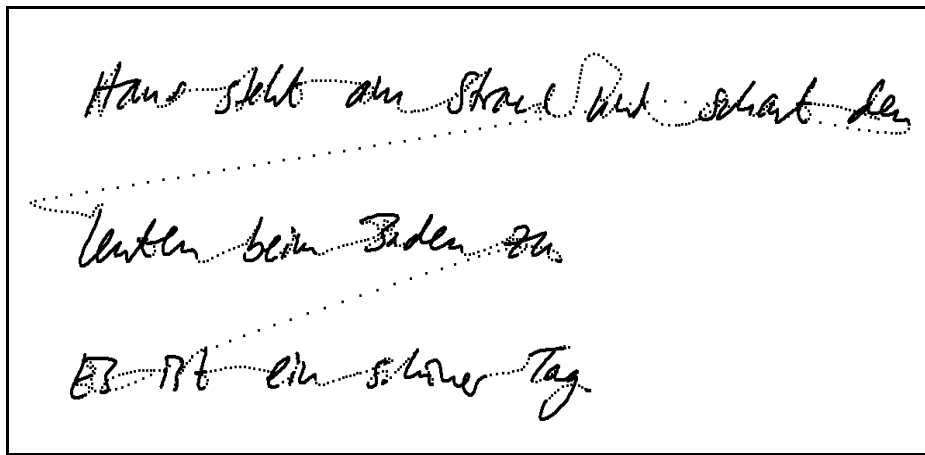 Hans steht am Strand und schaut den
Leuten beim Baden zu.
Es ist ein schöner Tag.